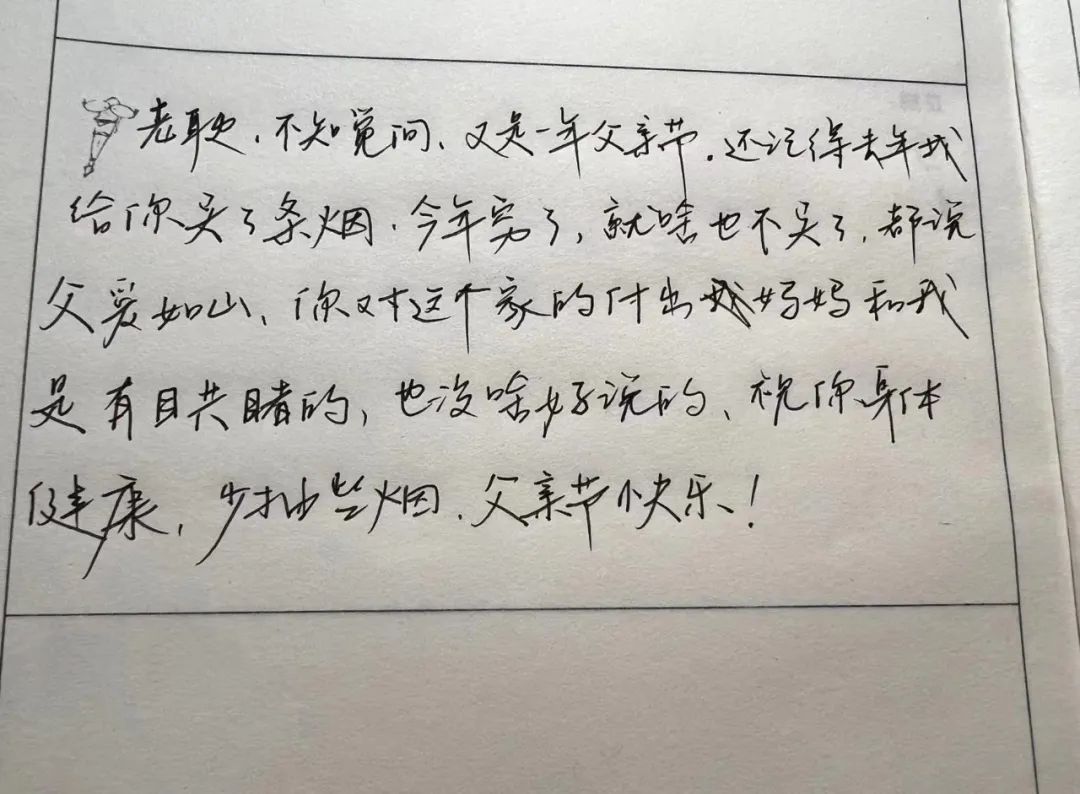 老耿，不知觉间、又是一年父亲节。还记得去年我
给你买了条烟．今年穷了，就啥也不买了，都说
父爱如山、你对这个家的付出我妈妈和我
是有目共睹的，也没啥好说的、祝你身体
健康，少抽些烟．父亲节快乐！